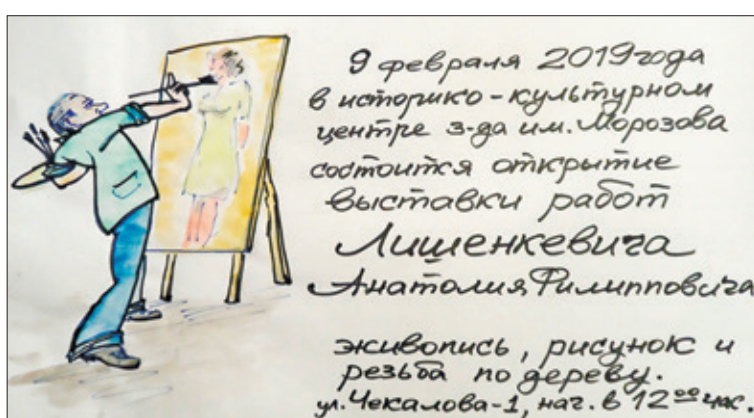 9 февраля 2019 года
в историко-культурном
центре з-да им. Морозова
состоится открытие
выставки работ
Лишенкевича
Анатолия Филипповича
живопись, рисунок и
резьба по дереву.
ул. Чекалова-1, нач. в 12 00 час.